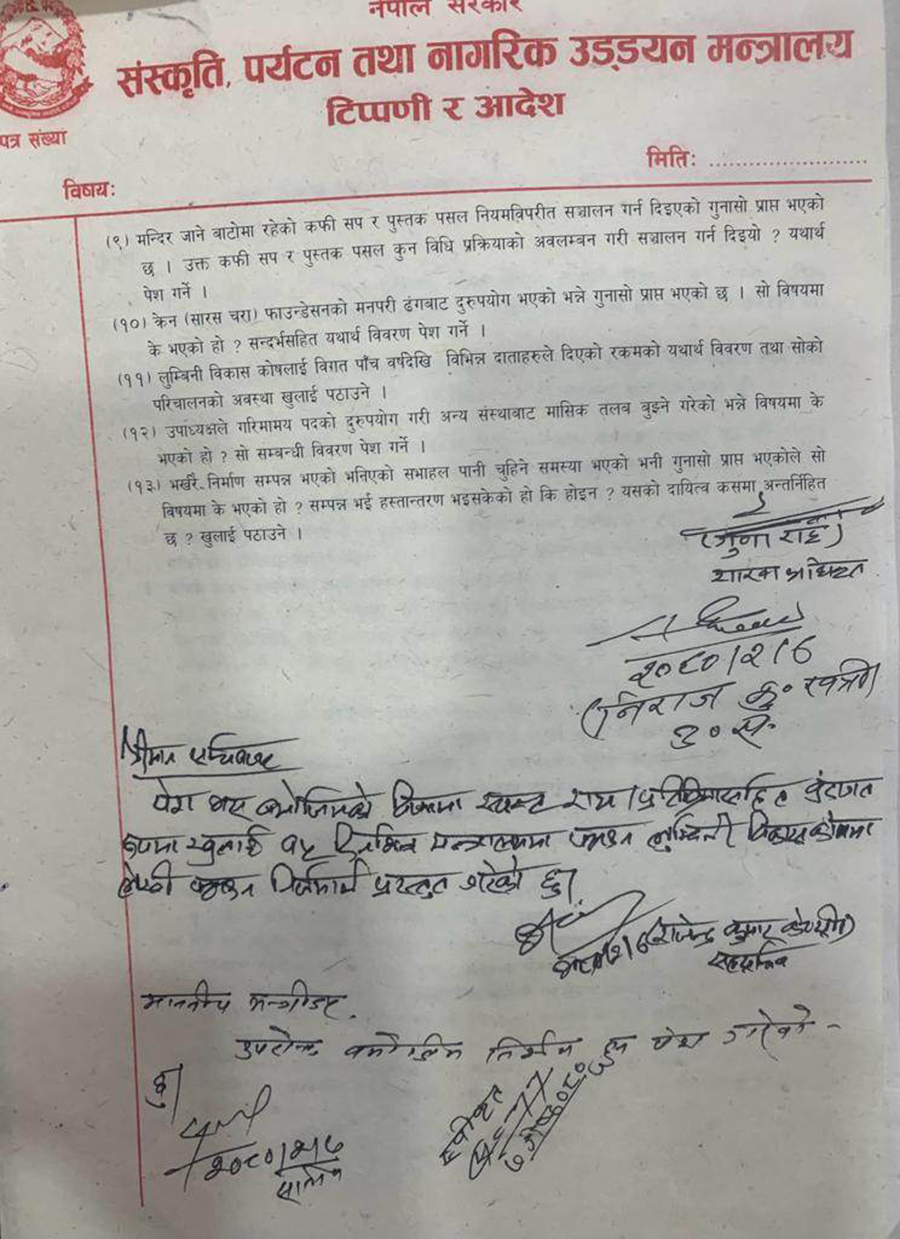 नेपाल सरकार
संस्कृति, पर्यटन तथा नागरिक उड्डयन मन्त्रालय
टिप्पणी र आदेश
पत्र संख्या
मितिः ........................
विषयः
(९) मन्दिर जाने बाटोमा रहेको कफी सप र पुस्तक पसल नियमविपरीत सञ्चालन गर्न दिइएको गुनासो प्राप्त भएको
छ । उक्त कफी सप र पुस्तक पसल कुन विधि प्रक्रियाको अवलम्बन गरी सञ्चालन गर्न दिइयो ? यथार्थ
पेश गर्ने ।
(१०) क्रेन (सारस चरा) फाउन्डेसनको मनपरी ढंगबाट दुरुपयोग भएको भन्ने गुनासो प्राप्त भएको छ । सो विषयमा
के भएको हो ? सन्दर्भसहित यथार्थ विवरण पेश गर्ने ।
(११) लुम्बिनी विकास कोषलाई विगत पाँच वर्षदेखि विभिन्न दाताहरुले दिएको रकमको यथार्थ विवरण तथा सोको
परिचालनको अवस्था खुलाई पठाउने ।
(१२) उपाध्यक्षले गरिमामय पदको दुरुपयोग गरी अन्य संस्थाबाट मासिक तलब बुझ्ने गरेको भन्ने विषयमा के
भएको हो ? सो सम्बन्धी विवरण पेश गर्ने ।
(१३) भर्खरै निर्माण सम्पन्न भएको भनिएको सभाहल पानी चुहिने समस्या भएको भनी गुनासो प्राप्त भएकोले सो
विषयमा के भएको हो ? सम्पन्न भई हस्तान्तरण भइसकेको हो कि होइन ? यसको दायित्व कसमा अन्तर्निहित
छ ? खुलाई पठाउने ।
शाखा अधिकृत
२०८०/२/८
(निराज कु॰ खत्री)
उ॰स॰
श्रीमान सचिवज्यू
पेश भए बमोजिमको विषयमा स्पष्ट राय/प्रतिक्रियासहित बुँदागत
रुपमा खुलाई मन्त्रालयमा पठाउन लुम्बिनी विकास कोषमा
लेखी पठाउन निर्णयार्थ प्रस्तुत गरेको छु।
(राजेन्द्र कुमार के॰सी॰)
सहसचिव
माननीय मन्त्रीज्यू,
उपरोक्त बमोजिम निर्णय हुन पेश गरेको
छु।
सचिव
स्वीकृत